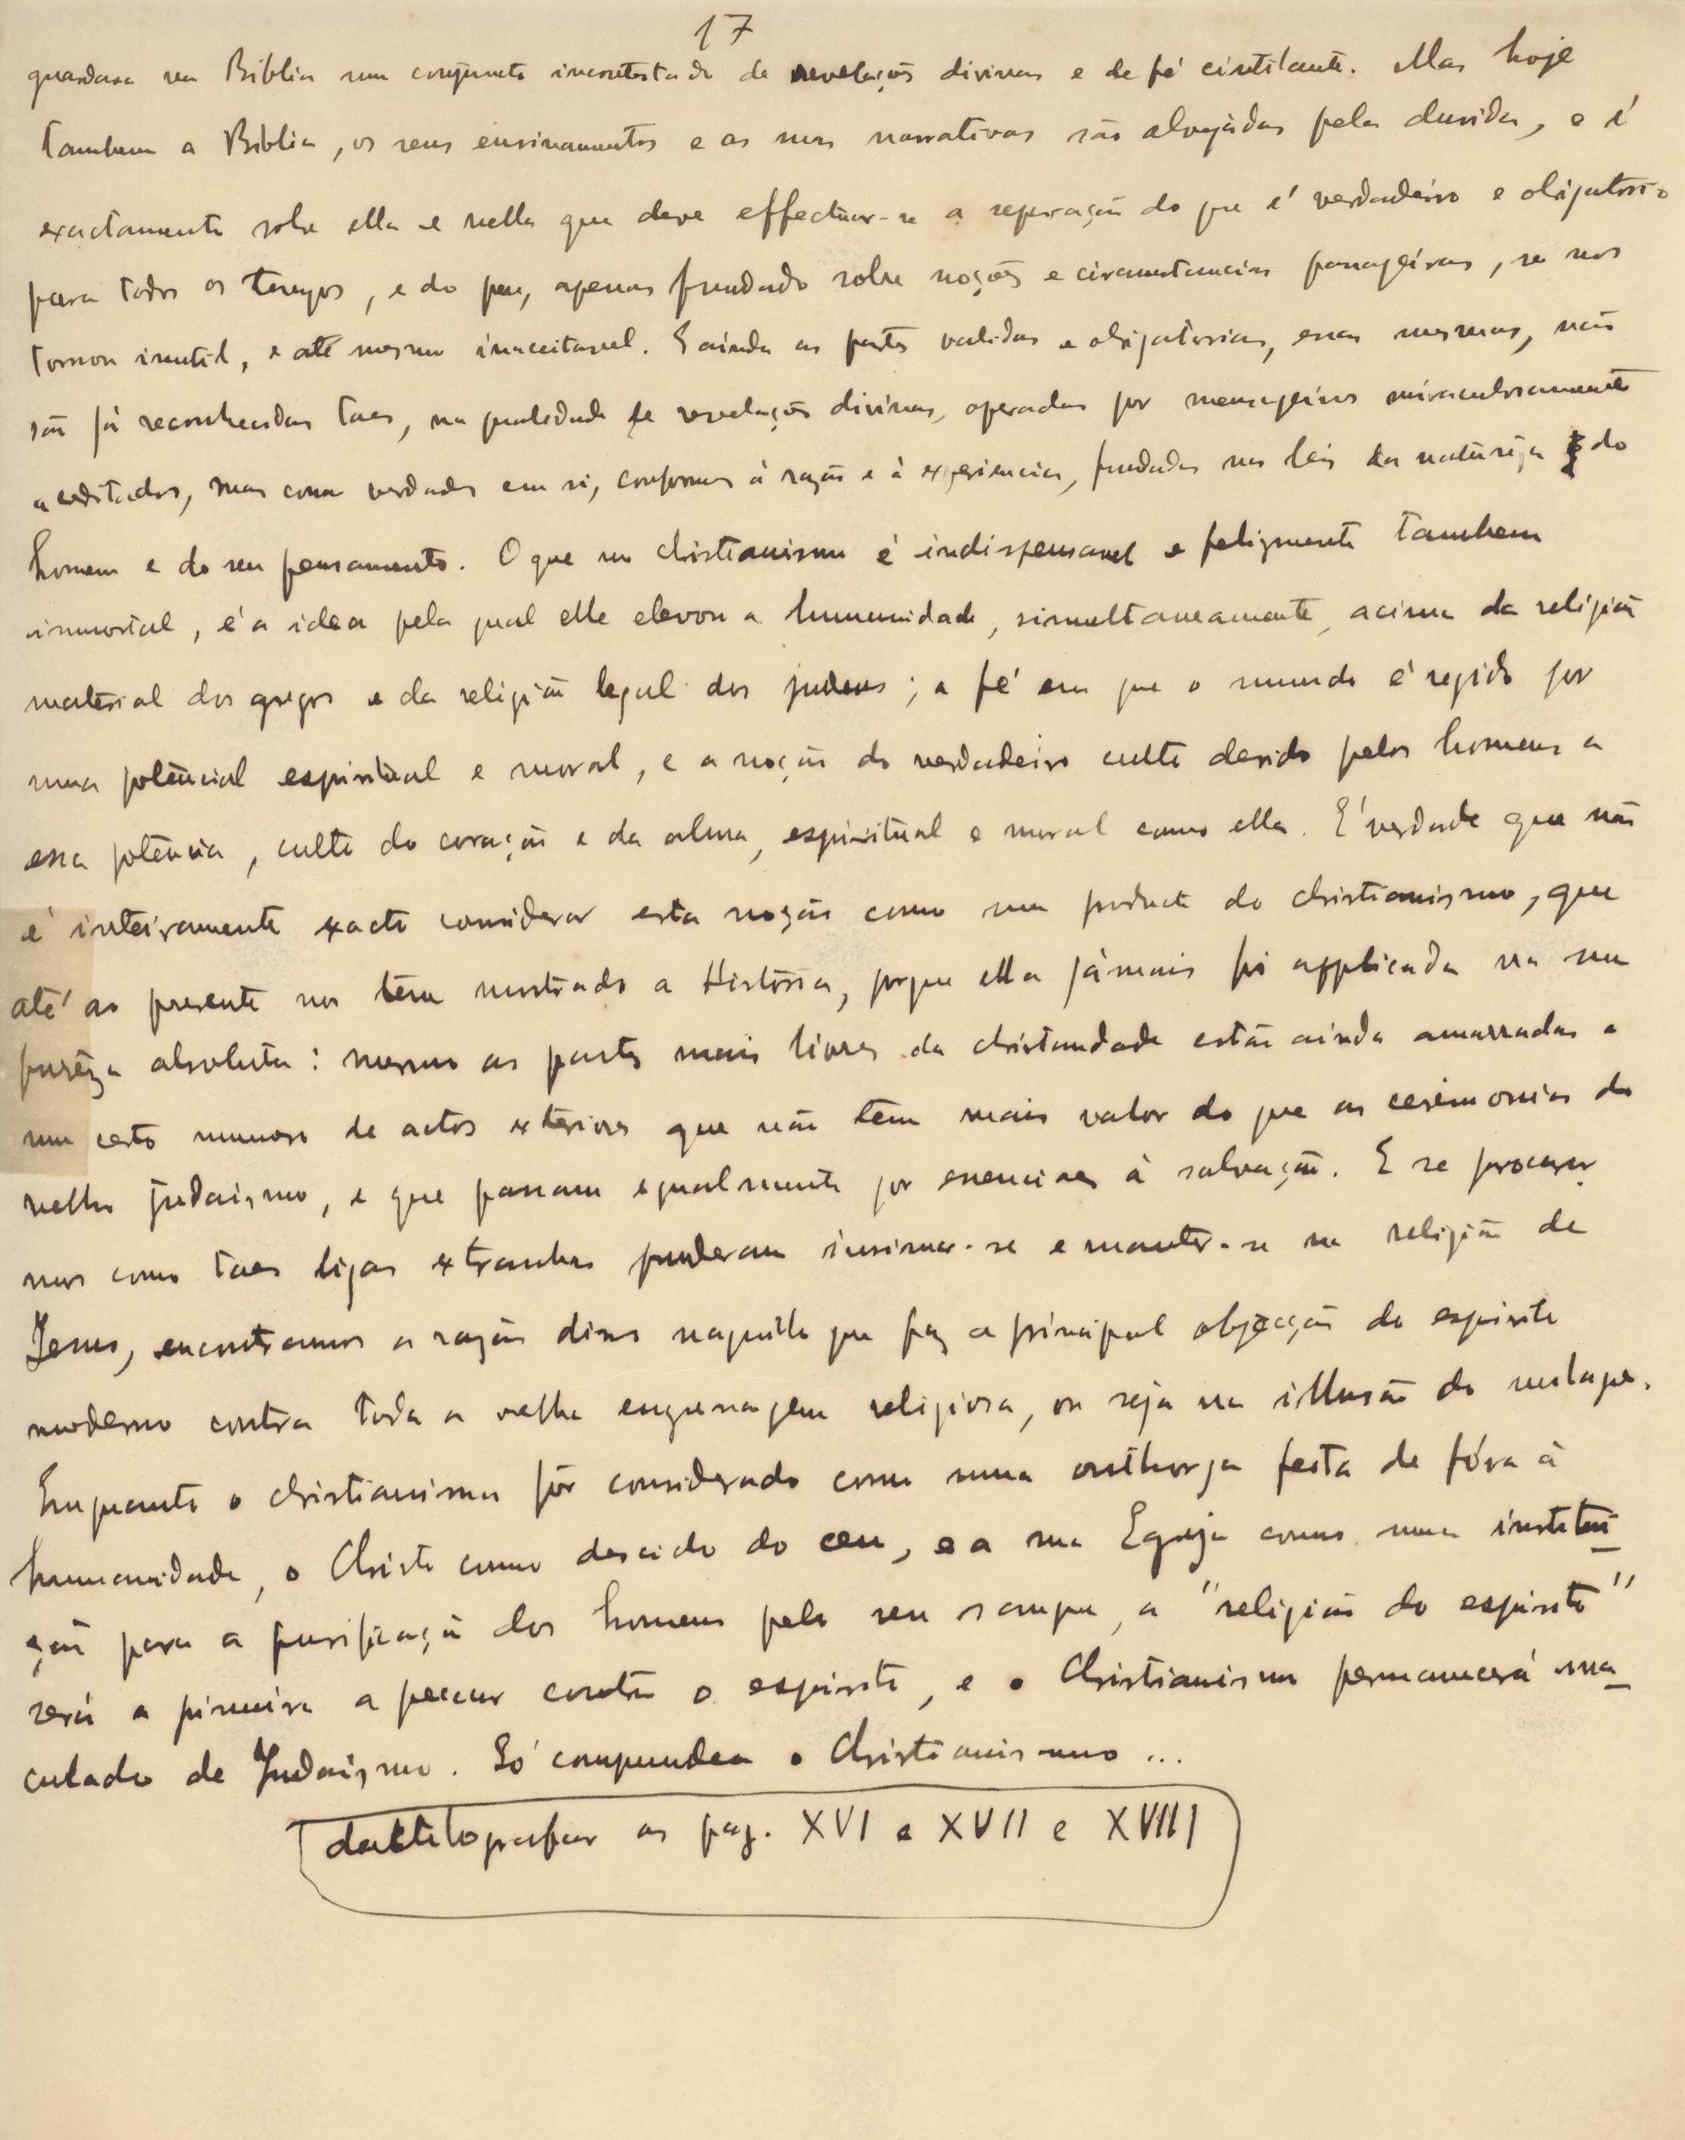 17
guardava na Biblia um conjuncto incontestado de revelações divinas e de fé cintilante. Mas hoje
tambem a Biblia, os seus ensinamentos e as suas narrativas são alvejadas pela duvida, e é
exactamente sobre ella e nella que deve effectuar-se a separação do que é verdadeiro e obrigatorio
para todos os tempos, e do que, apenas fundado sobre noções e circumstancias passageiras, se nos
tornou inutil, e até mesmo inacceitavel. E ainda as partes validas e obrigatorias, essas mesmas, não
são já reconhecidas taes, na qualidade de revelações divinas, operadas por mensageiros miraculosamente
acreditados, mas como verdades em si, conformes á razão e á experiencia, fundadas nas leis da natureza do
homem e do seu pensamento. O que no christianismo é indispensavel e felizmente tambem
immortal, é a idea pela qual elle elevou a humanidade, simultaneamente, acima da religião
material dos gregos e da religião legal dos judeus; a fé em que o mundo é regido por
uma potencial espiritual e moral, e a noção do verdadeiro culto devido pelos homens a
essa potencia, culto do coração e da alma, espiritual e moral como ella. E' verdade que não
é inteiramente exacto considerar esta noção como um producto do christianismo, que
até ao presente nos tem mostrado a Historia, porque ella jámais foi applicada na sua
purêza absoluta: mesmo as partes mais livres da christandade estão ainda amarradas a
um certo numero de actos exteriores que não têm mais valor do que as ceremonias do
velho judaismo, e que passam egualmente por essenciaes á salvação. E se procurar-
mos como taes ligas extranhas puderam insinuar-se e manter-se na religião de
Jesus, encontramos a razão disso naquillo que faz a principal objecção do espirito
moderno contra toda a velha engrenagem religiosa, ou seja na illusão do milagre.
Emquanto o christianismo fôr considerado como uma outhorga feita de fóra á
humanidade, o Christo como descido do ceu, e a sua Egreja como uma institui-
ção para a purificação dos homens pelo seu sangue, a "religião do espirito"
será a primeira a peccar contra o espirito, e o Christianismo permanecerá ma-
culado de Judaismo. Só comprendea o Christianismo ...
dactilografar as pag. XVI e XVII e XVIII